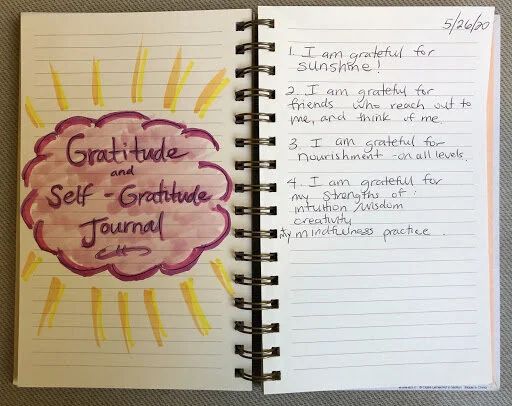 Gratitude
and
Self-Gratitude
Journal
5/26/20
1. I am grateful for
sunshine!
2. I am grateful for
friends who reach out to
me, and think of me.
3. I am grateful for
nourishment on all levels.
4. I am grateful for
my strengths of:
intuition/wisdom
creativity
my mindfulness practice.